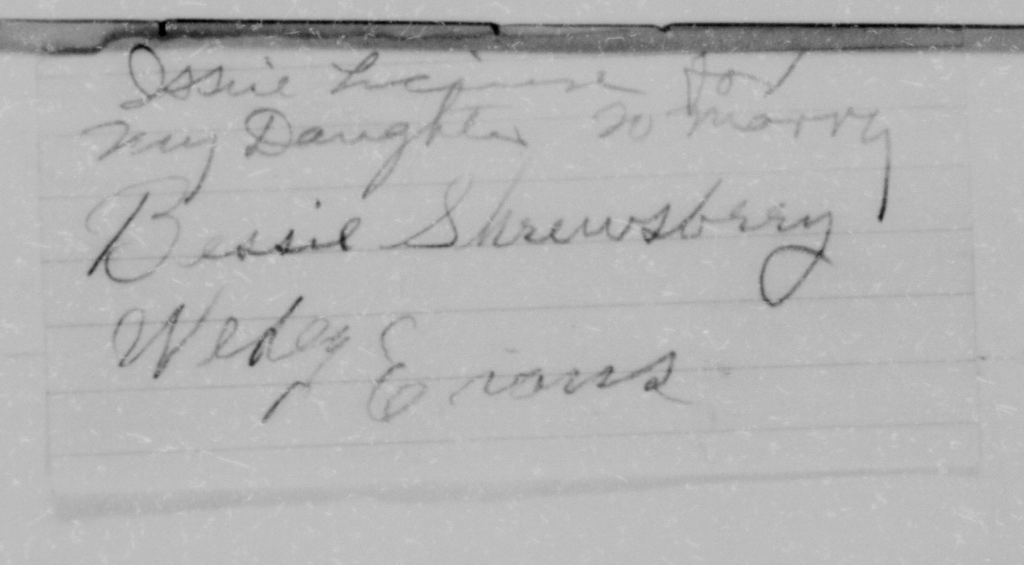 Issue License for
my Daughter to marry
Bessie Shrewsberry
Wesley Evans